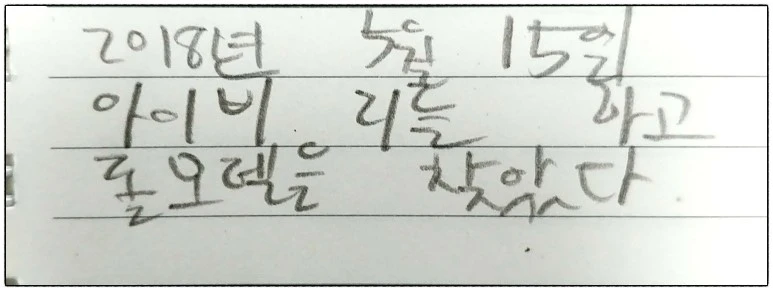 2018년 5월 15일
아이비 리를 하고
롤모델을 찾았다.